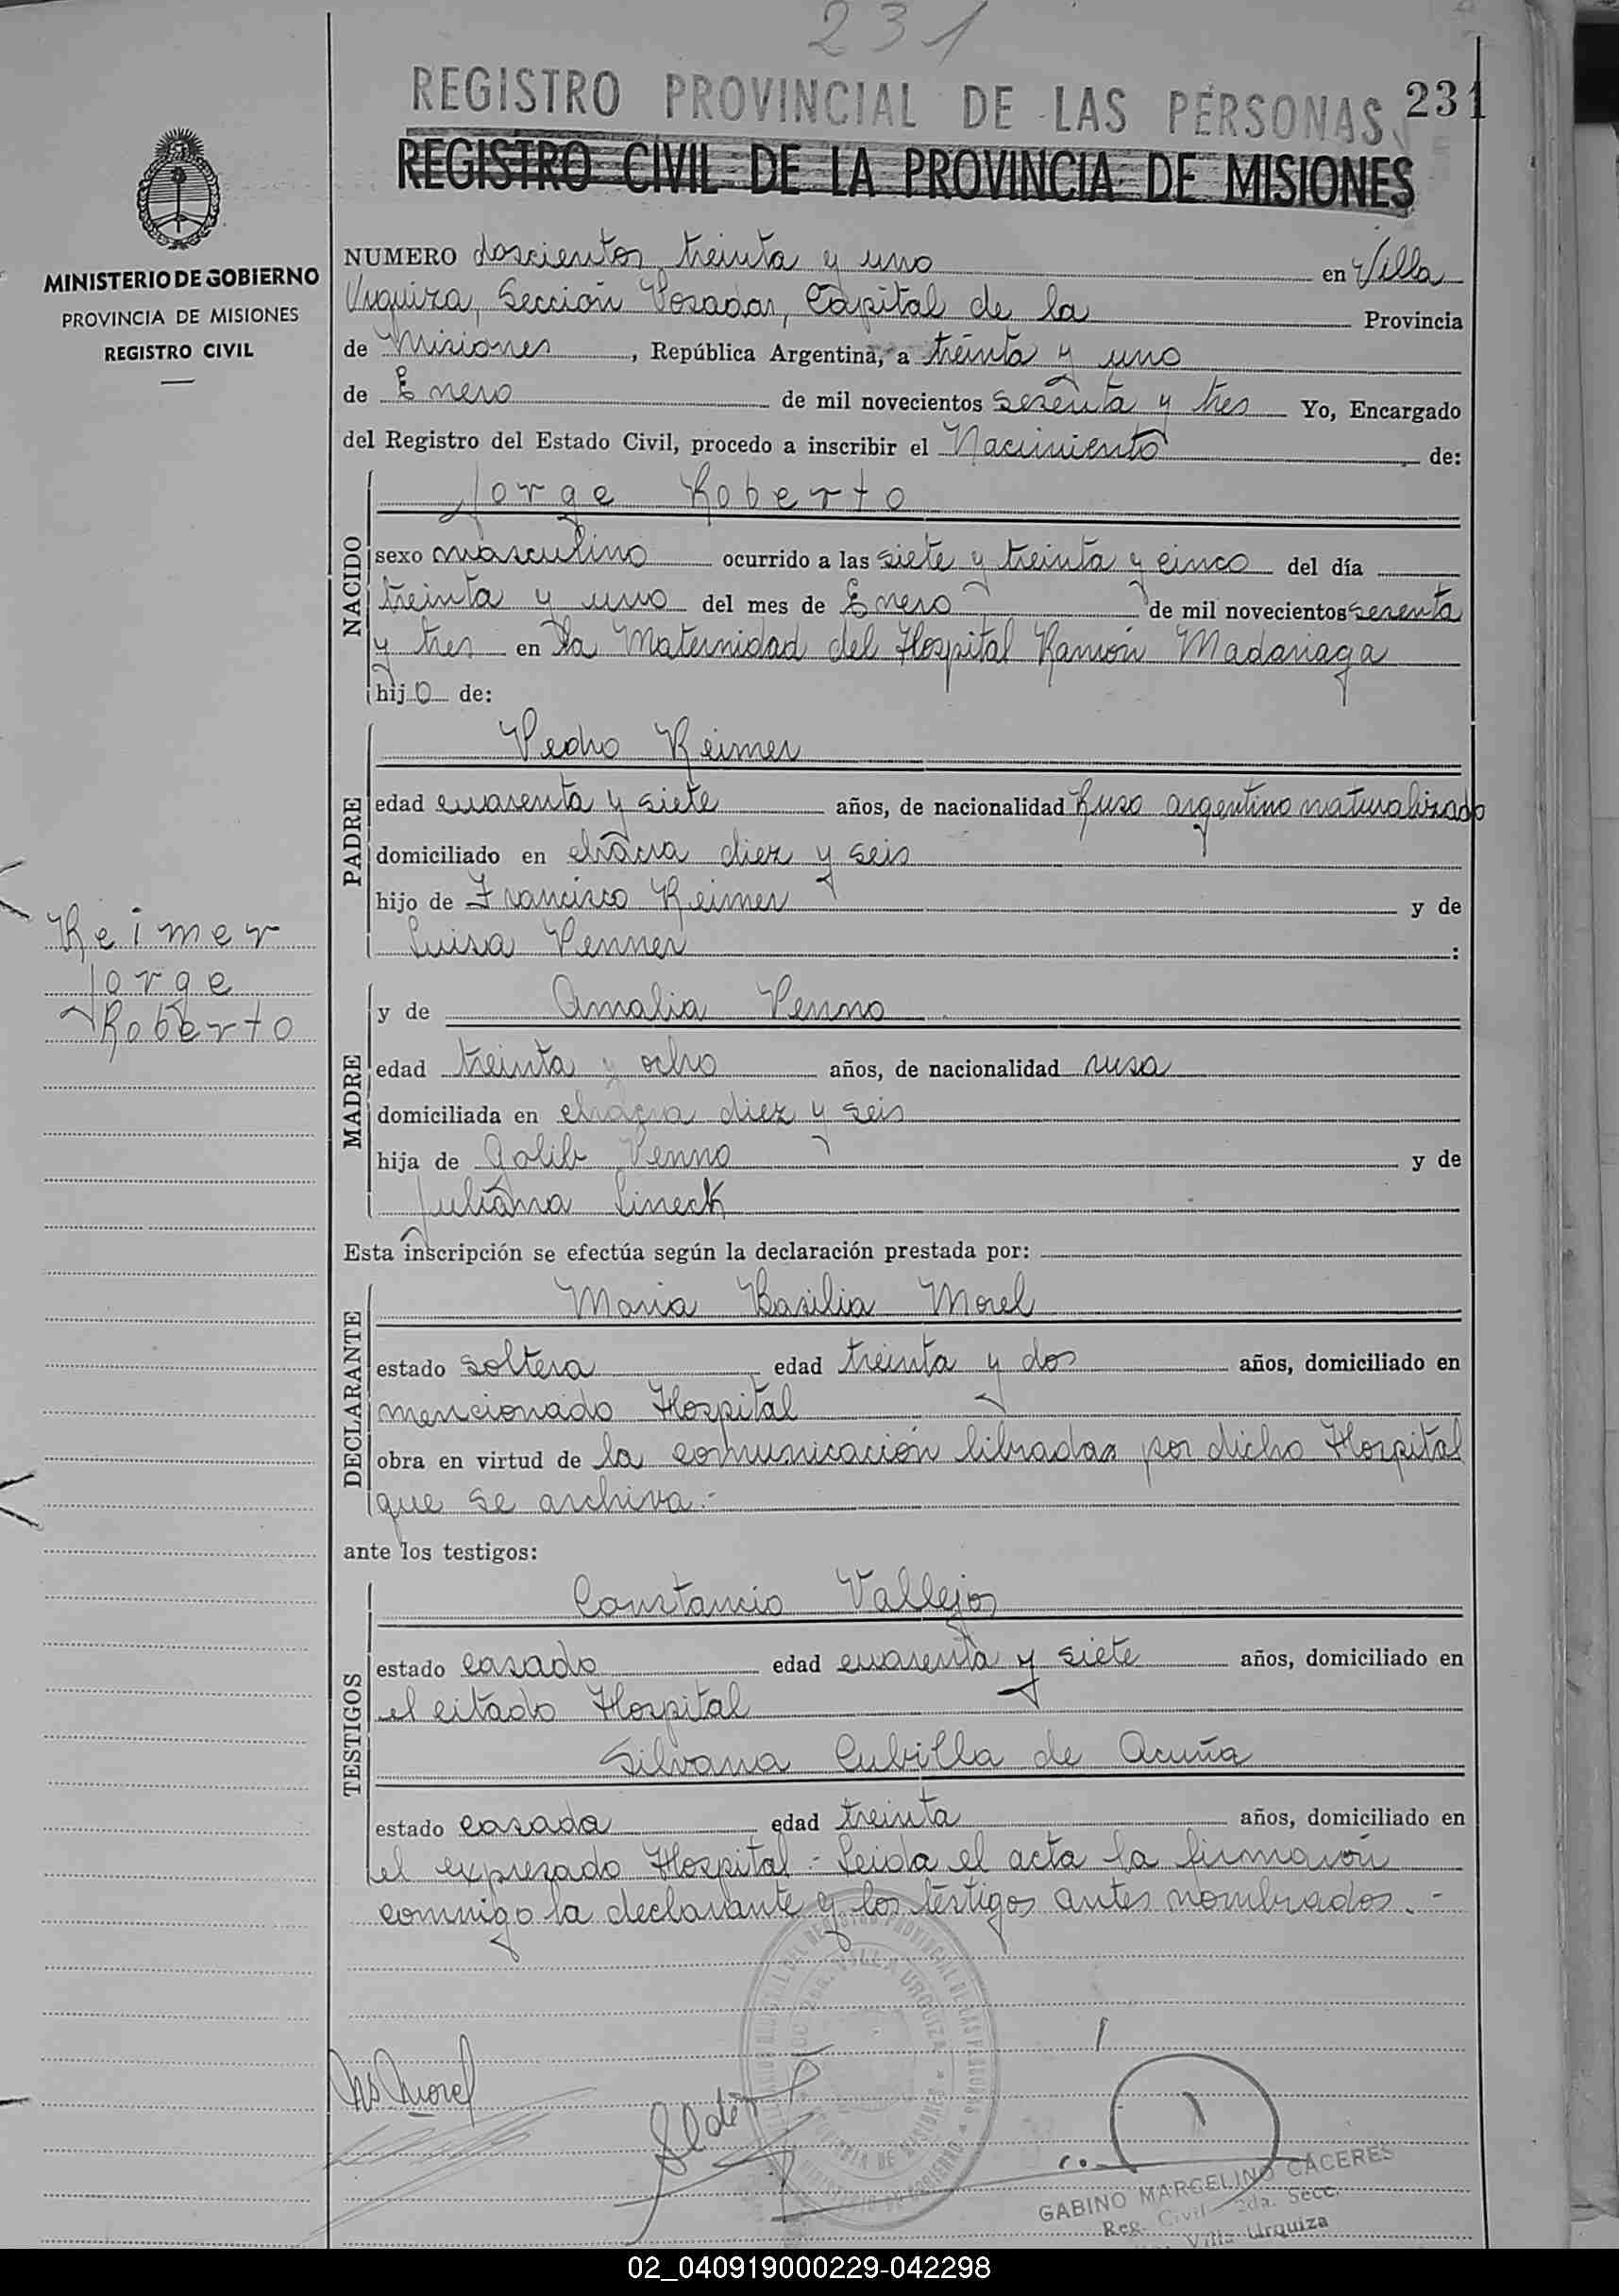 231
REGISTRO PROVINCIAL DE LAS PERSONAS
231
REGISTRO CIVIL DE LA PROVINCIA DE MISIONES
MINISTERIO DE GOBIERNO
PROVINCIA DE MISIONES
REGISTRO CIVIL
NUMERO doscientos treinta y uno en Villa
Urquiza, Sección Posadas, Capital de la Provincia
de Misiones, República Argentina, a treinta y uno
de Enero de mil novecientos sesenta y tres Yo, Encargado
del Registro del Estado Civil, procedo a inscribir el Nacimiento de:
NACIDO
Jorge Roberto
sexo masculino ocurrido a las siete y treinta y cinco del día
treinta y uno del mes de Enero de mil novecientos sesenta
y tres en la Maternidad del Hospital Ramón Madariaga
hijo de:
PADRE
Pedro Reimer
edad cuarenta y siete años, de nacionalidad Ruso argentino naturalizado
domiciliado en chacra diez y seis
hijo de Francisco Reimer y de
Luisa Penner :
Reimer
Jorge
Roberto
MADRE
y de Amalia Penno
edad treinta y ocho años, de nacionalidad rusa
domiciliada en chacra diez y seis
hija de Golib Penno y de
Juliana Lineck
Esta inscripción se efectúa según la declaración prestada por:
DECLARANTE
Maria Basilia Morel
estado soltera edad treinta y dos años, domiciliado en
mencionado Hospital
obra en virtud de la comunicación librada por dicho Hospital
que se archiva.-
ante los testigos:
TESTIGOS
Constancio Vallejos
estado casado edad cuarenta y siete años, domiciliado en
el citado Hospital
Silvana Cubilla de Acuña
estado casada edad treinta años, domiciliado en
el expresado Hospital.- Leida el acta la firmaron
conmigo la declarante y los testigos antes nombrados.-
Morel
GABINO MARCELINO CÁCERES
Reg. Civil 2da. Secc.
Villa Urquiza
02_040919000229-042298